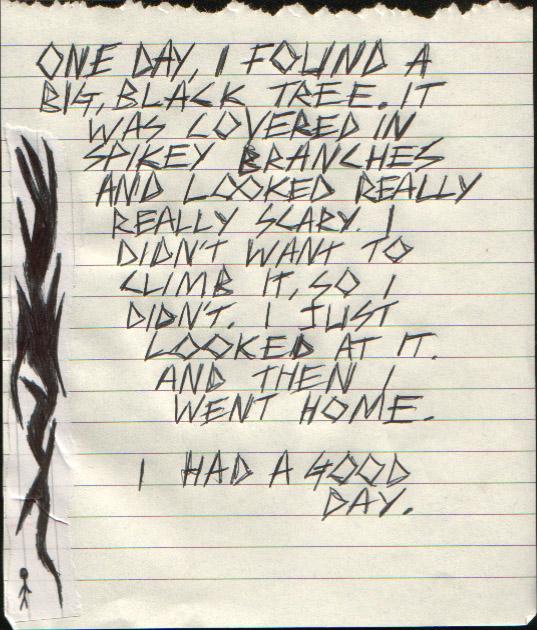 ONE DAY, I FOUND A
BIG, BLACK TREE. IT
WAS COVERED IN
SPIKEY BRANCHES
AND LOOKED REALLY
REALLY SCARY. I
DIDN'T WANT TO
CLIMB IT, SO I
DIDN'T. I JUST
LOOKED AT IT.
AND THEN I
WENT HOME.
I HAD A GOOD
DAY.